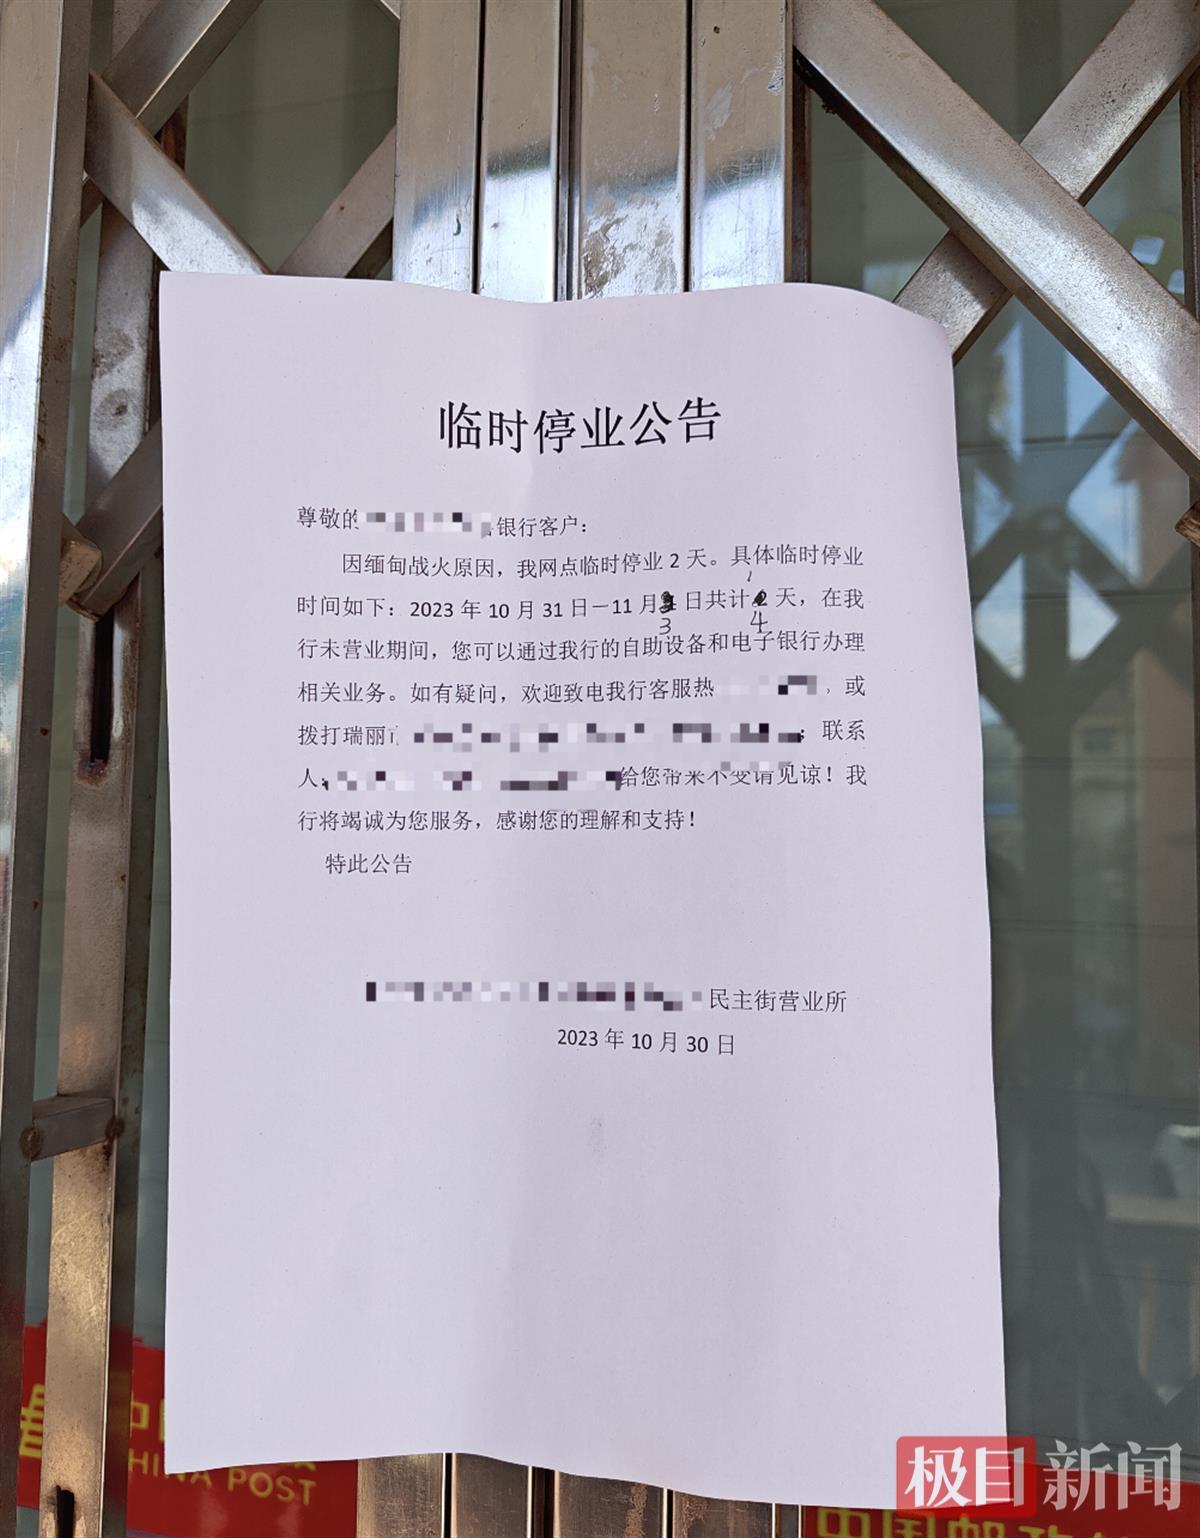 临时停业公告
尊敬的 银行客户：
因缅甸战火原因，我网点临时停业2天。具体临时停业
时间如下：2023年10月31日－11月3日共计4天，在我
行未营业期间，您可以通过我行的自助设备和电子银行办理
相关业务。如有疑问，欢迎致电我行客服热 ，或
拨打瑞丽 ；联系
人： 给您带来不变请见谅！我
行将竭诚为您服务，感谢您的理解和支持！
特此公告
民主街营业所
2023年10月30日
CHINA POST
中国邮政
极目新闻